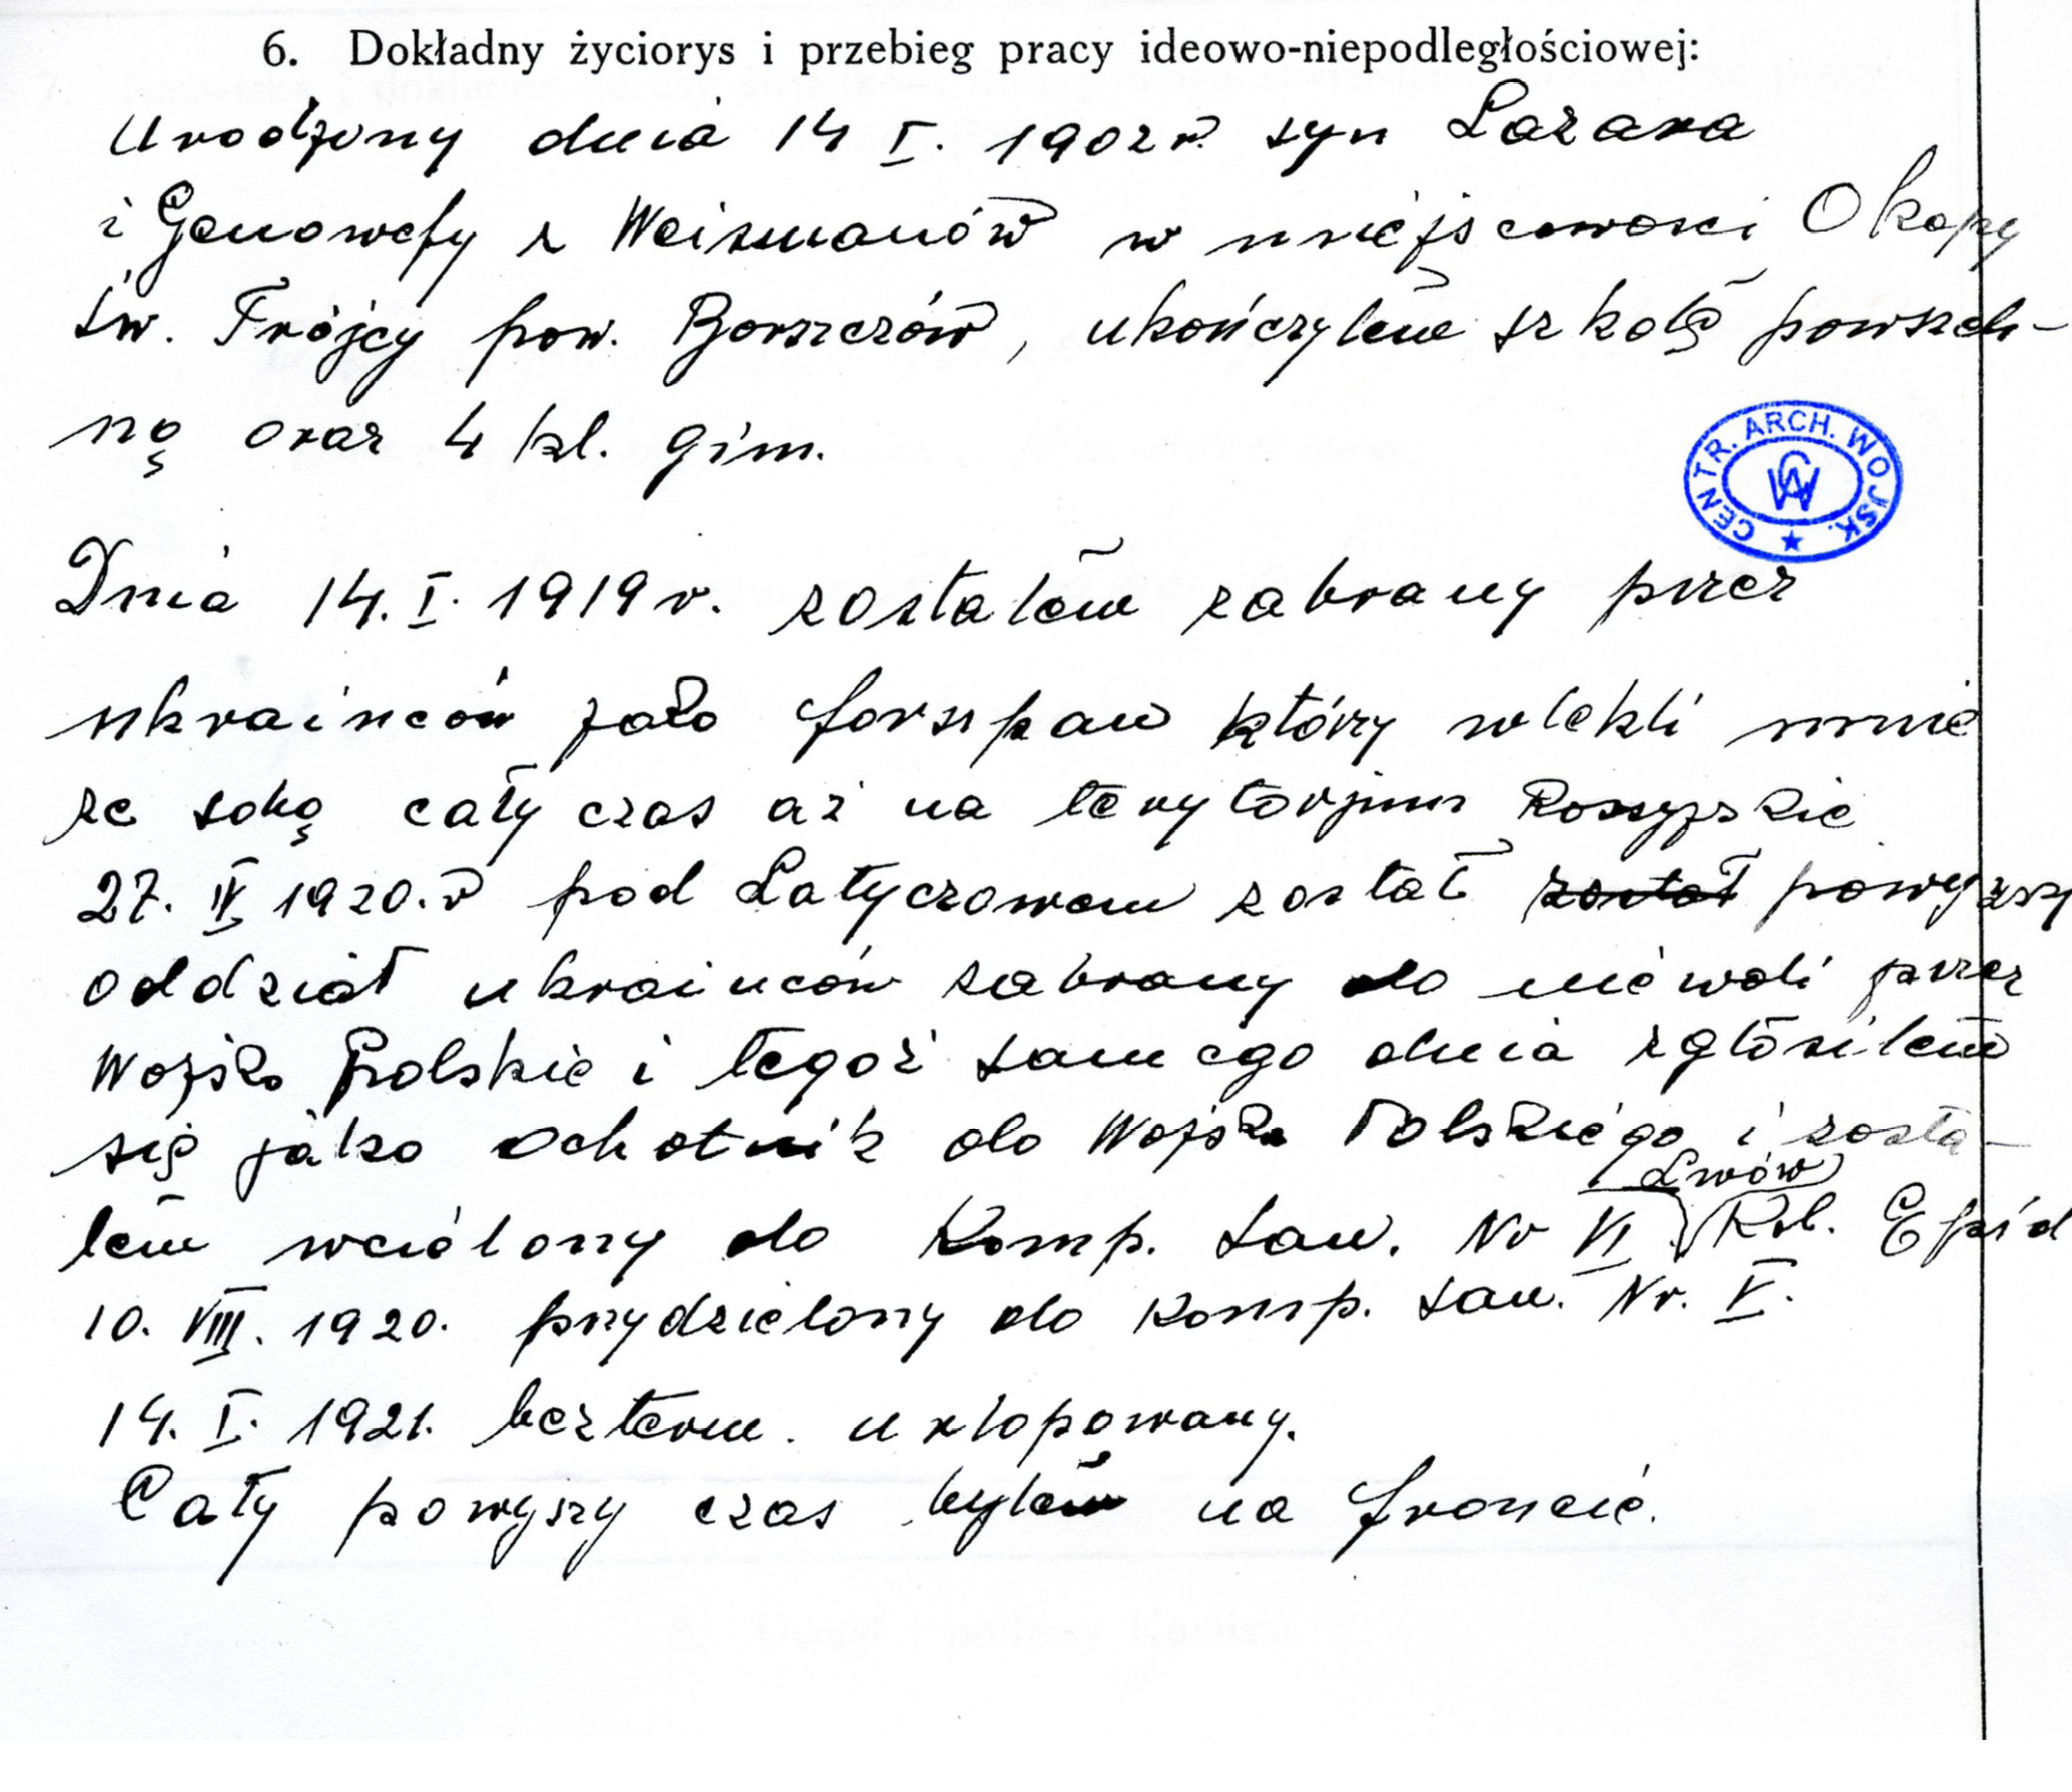 6. Dokładny życiorys i przebieg pracy ideowo-niepodległościowej:
Urodzony dnia 14 I. 1902 r. syn Lazara
i Genowefy z Weismanów w miejscowości Okopy
Św. Trójcy pow. Borszczów, ukończyłem szkołę powszech-
ną oraz 4 kl. gim.
CENTR. ARCH. WOJSK.
CAW
Dnia 14. I. 1919 r. zostałem zabrany przez
ukraińców jako forszpan którzy wlekli mnie
ze sobą cały czas aż na terytorjum Rossyjskie
27. IV 1920. r pod Latyczowem został został powyższy
oddział ukraińców zabrany do niewoli przez
Wojsko Polskie i tegoż samego dnia zgłosiłem
się jako ochotnik do Wojska Polskiego i zosta-
łem wcielony do Komp. San. Nr VI Lwów Kol. Epid
10. VIII. 1920. przydzielony do Komp. San. Nr. V.
14. I. 1921. bezterm. urlopowany.
Cały powyszy czas byłem na froncie.